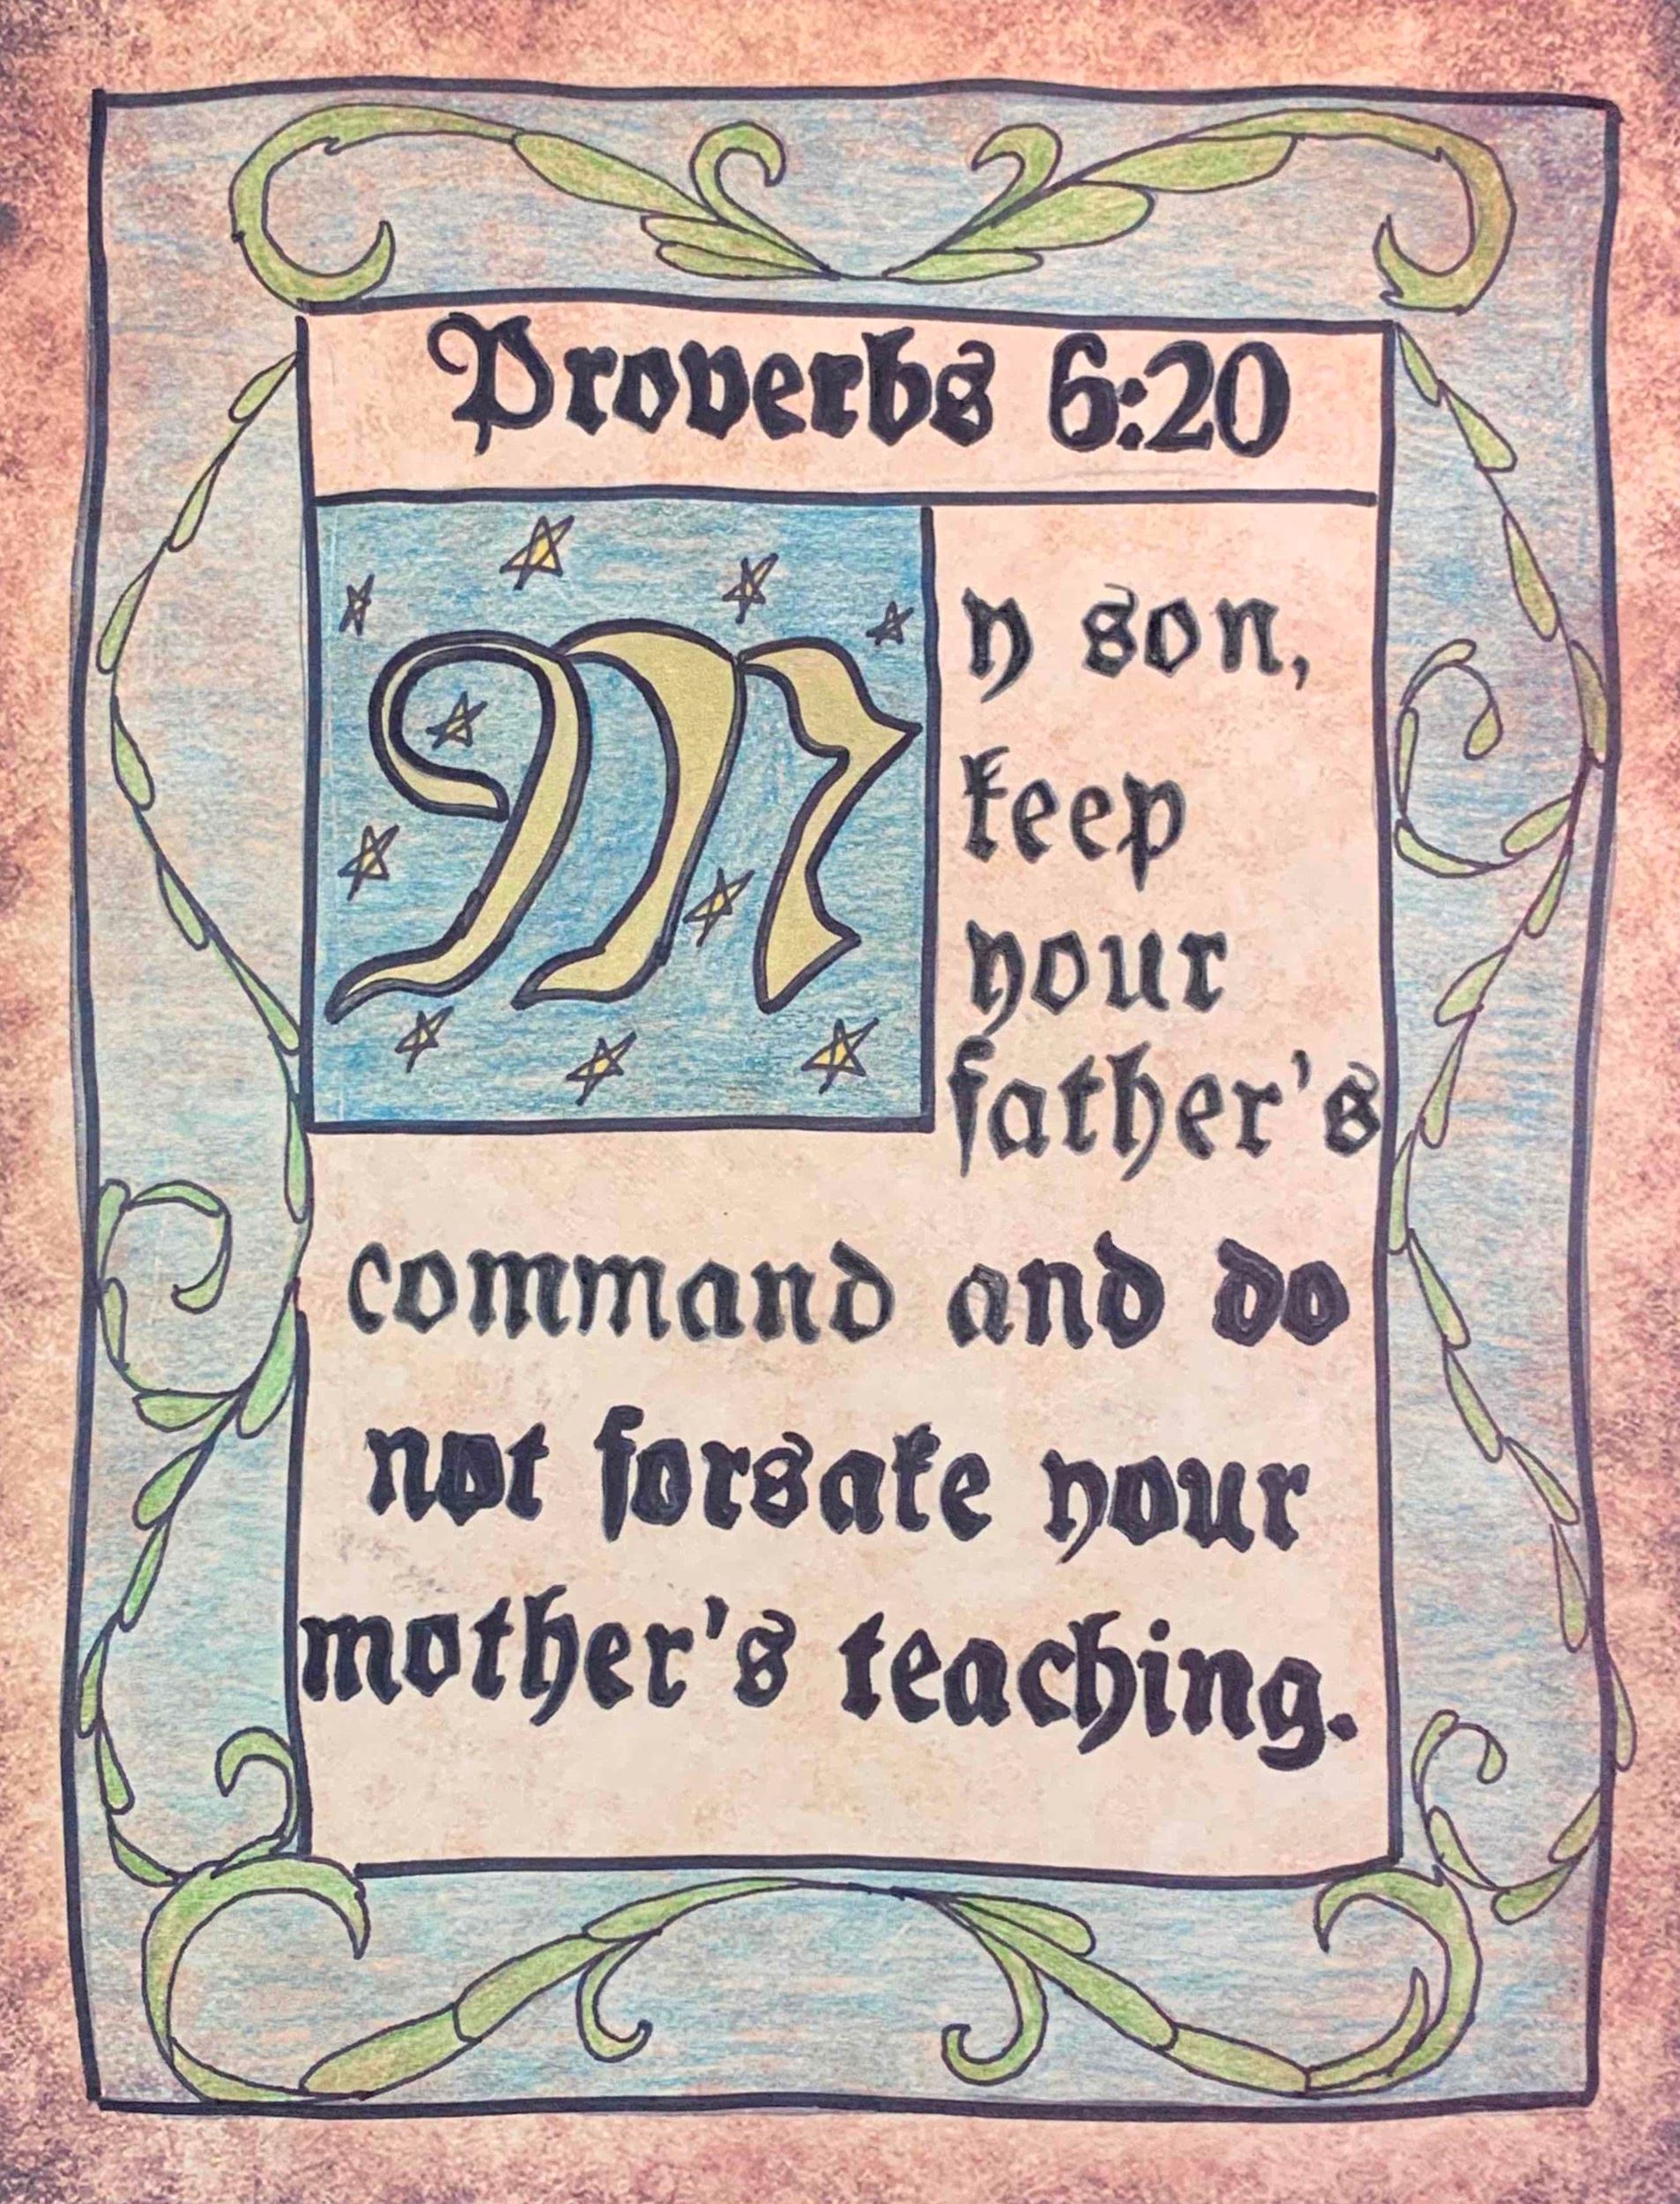 Proverbs 6:20
My son,
keep
your
father's
command and do
not forsake your
mother's teaching.